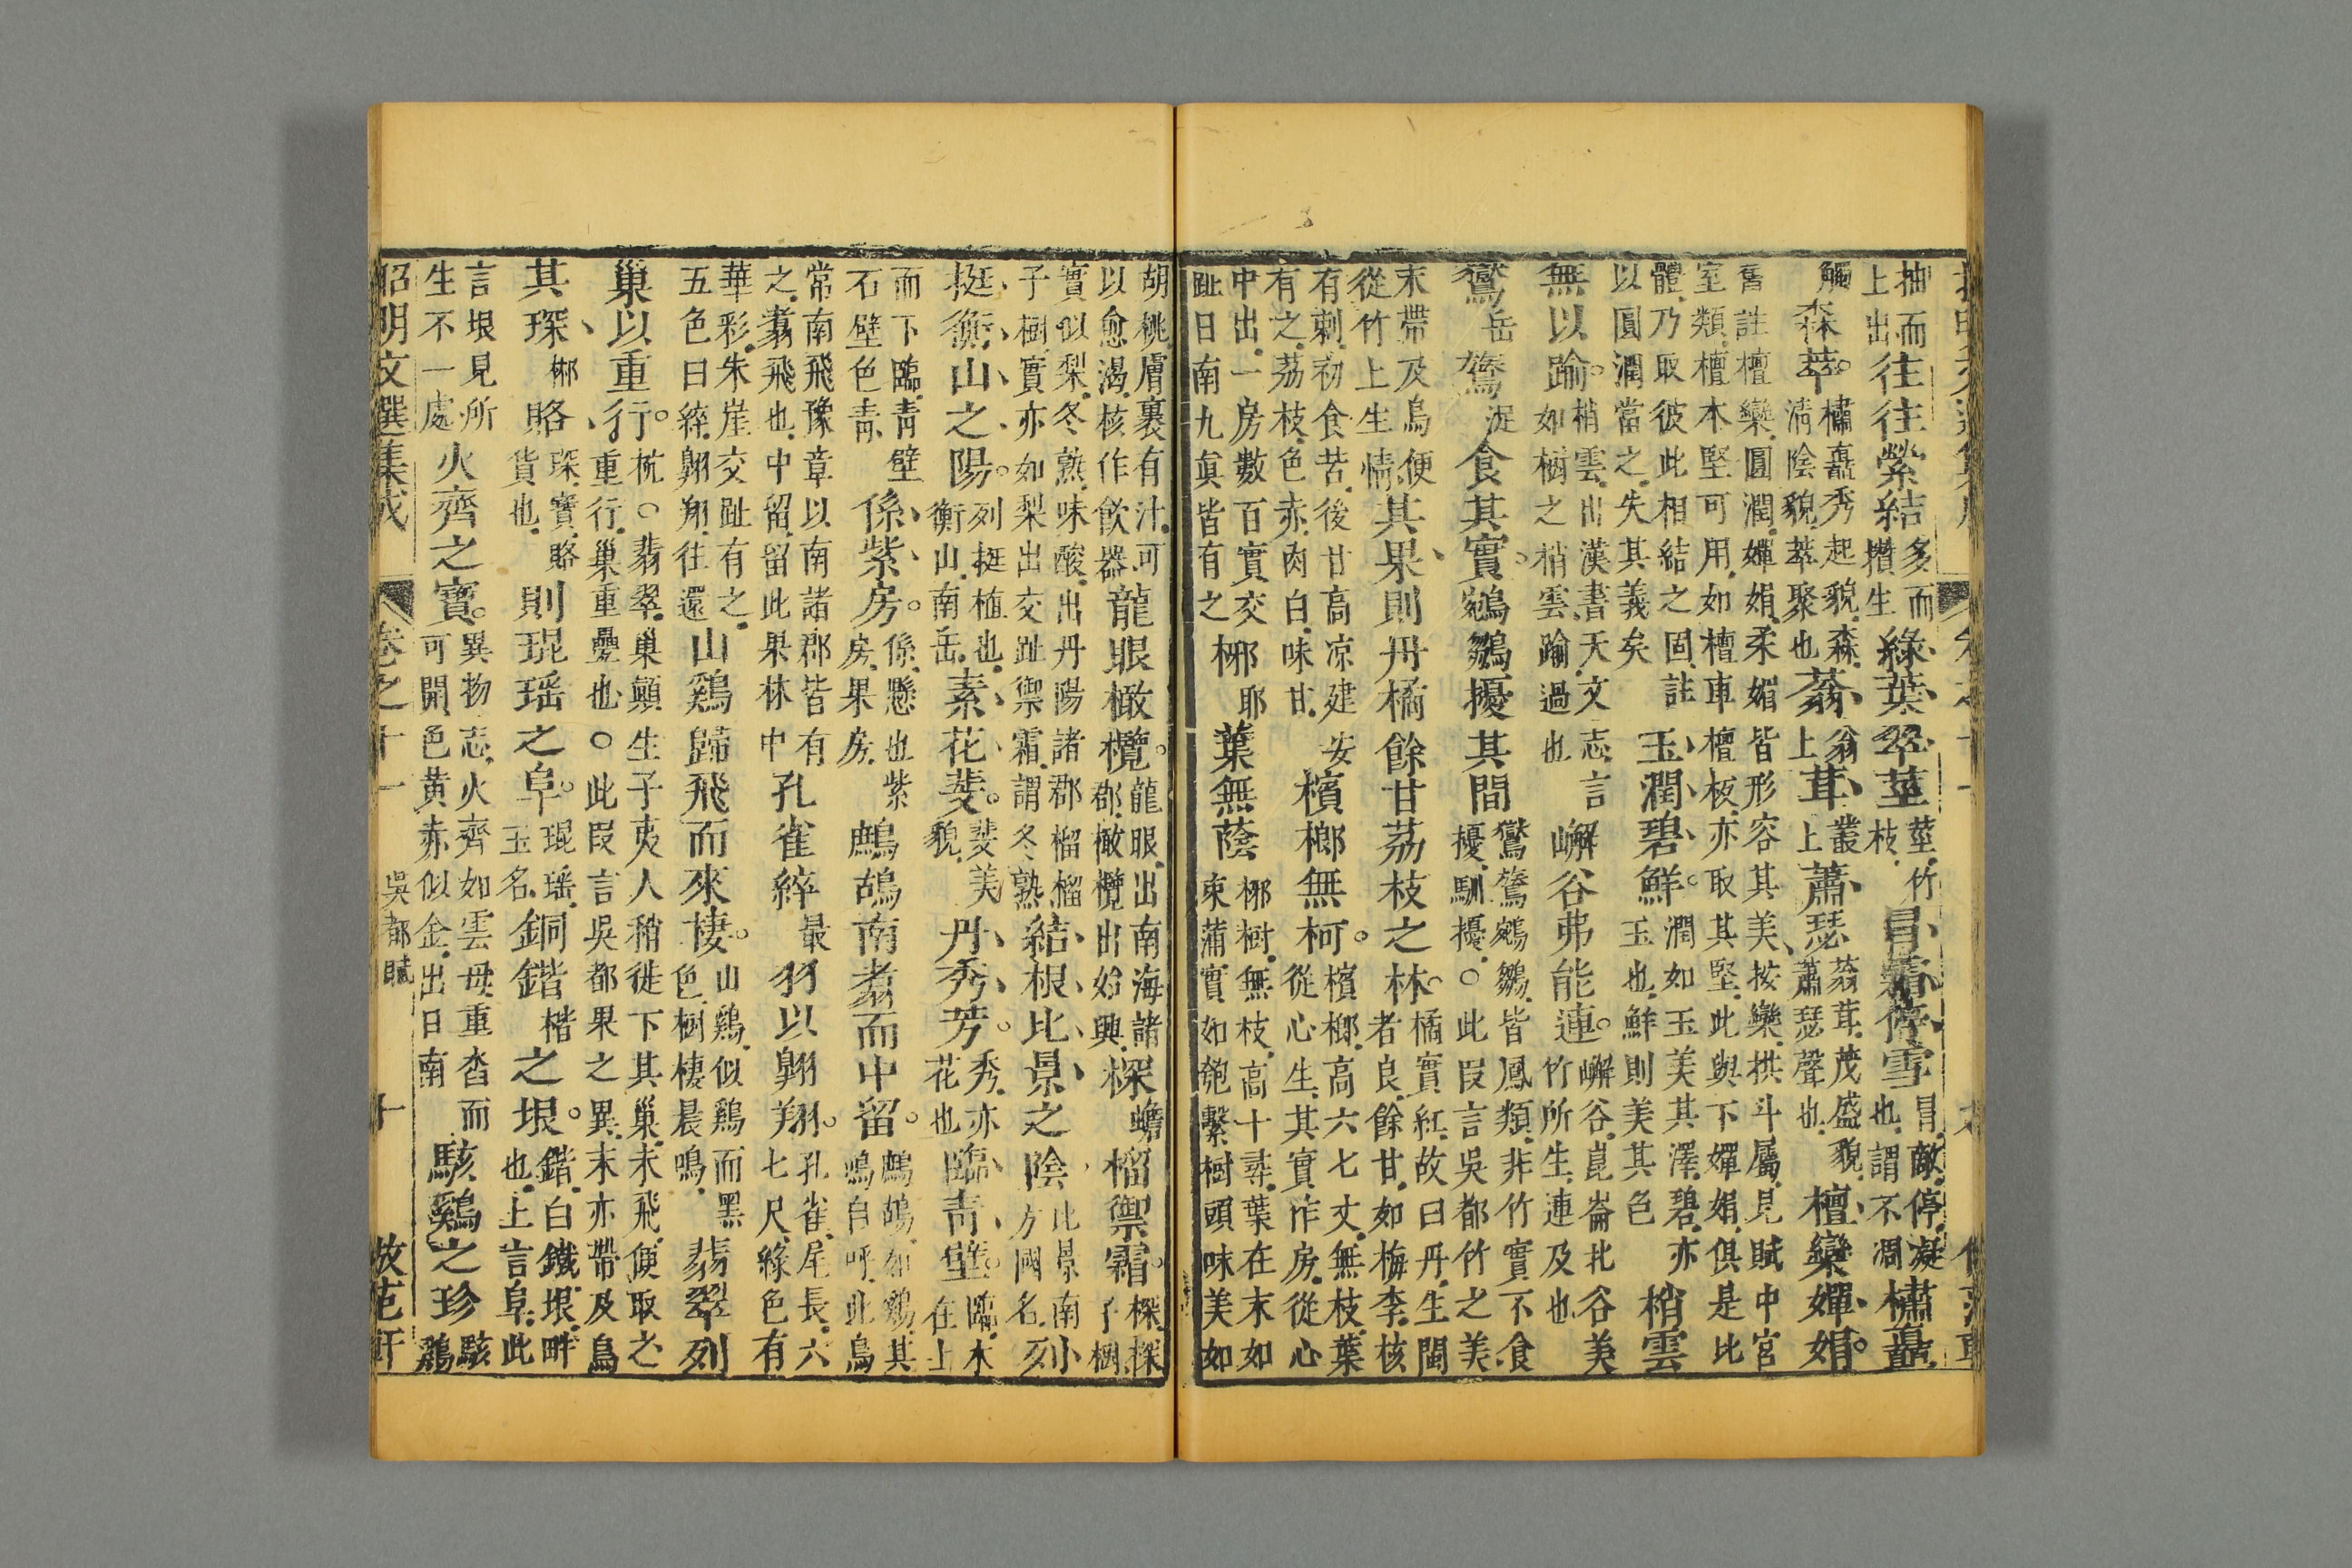 抽而上出往往縈結多而攢生綠葉翠莖莖竹枝冒霜停雪冒敵停凝也謂不凋橚矗
觸森萃橚矗秀起貌森清陰貌萃聚也蓊翁上茸叢上蕭瑟蓊茸茂盛貌蕭瑟聲也檀欒嬋娟
舊註檀欒圓潤嬋娟柔媚皆形容其美按欒拱斗屬見賦中宮
室類檀木堅可用如檀車檀板亦取其堅此與下嬋娟俱是比
體乃取彼此相結之固註
以圓潤當之失其義矣玉潤碧鮮潤如玉美其澤碧亦玉也鮮則美其色梢雲
無以踰梢雲出漢書天文志言如樹之梢雲踰過也嶰谷弗能連嶰谷崑崙北谷美竹所生連及也
鸑岳鷟浞食其實鵷鶵擾其間鸑鷟鵷鶵皆鳳類非竹實不食擾馴擾○此叚言吳都竹之美
末帶及鳥便從竹上生情其果則丹橘餘甘荔枝之林橘實紅故曰丹生閩者良餘甘如梅李核
有刺初食苦後甘高凉建安有之荔枝色赤肉白味甘檳榔無柯檳榔高六七丈無枝葉從心生其實作房從心
中出一房數百實交趾日南九眞皆有之椰耶葉無蔭椰樹無枝高十尋葉在末如束蒲實如匏繫樹頭味美如
胡桃膚裏有汁可以愈渴核作飲器龍眼橄欖龍眼出南海諸郡橄欖出始興棎蟾榴禦霜棎棎子樹
實似梨冬熟味酸出丹陽諸郡榴榴子樹實亦如梨出交趾禦霜謂冬熟結根比景之陰比景南方國名列
挺衡山之陽列挺植也衡山南岳素花斐斐美貌丹秀芳秀亦花也臨青壁臨木在上
而下臨青壁石壁色青係紫房係懸也紫房果房鷓鴣南翥而中留鷓鴣如鷄其鳴自呼此鳥
常南飛豫章以南諸郡皆有之翥飛也中留留此果林中孔雀綷最羽以翱翔孔雀尾長六七尺綠色有
華彩朱崖交趾有之五色曰綷翱翔往還山鷄歸飛而來棲山鷄似鷄而黑色樹棲晨鳴翡翠列
巢以重行杭○翡翠巢顛生子夷人稍徙下其巢未飛便取之重行巢重疊也○此叚言吳都果之異末亦帶及鳥
其琛郴賂琛寶賂貨也則琨瑶之阜琨瑶玉名銅鍇楷之垠鍇白鐵垠畔也上言阜此
言垠見所生不一處火齊之寶異物志火齊如雲母重沓而可開色黄赤似金出日南駭鷄之珍駭鷄
昭明文選集成 卷之十一 吳都賦 十 倣范軒